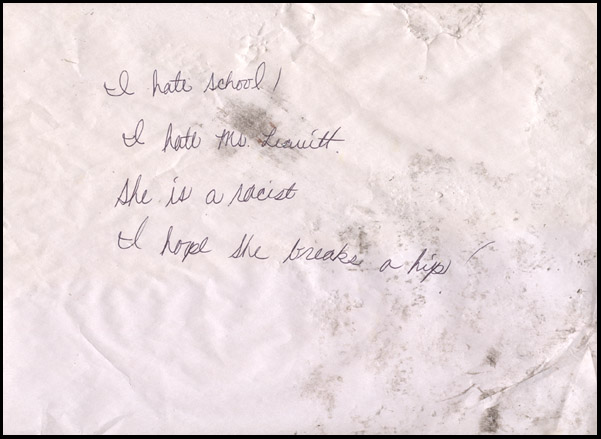 I hate school!
I hate Ms. Leavitt.
She is a racist
I hope she breaks a hip!